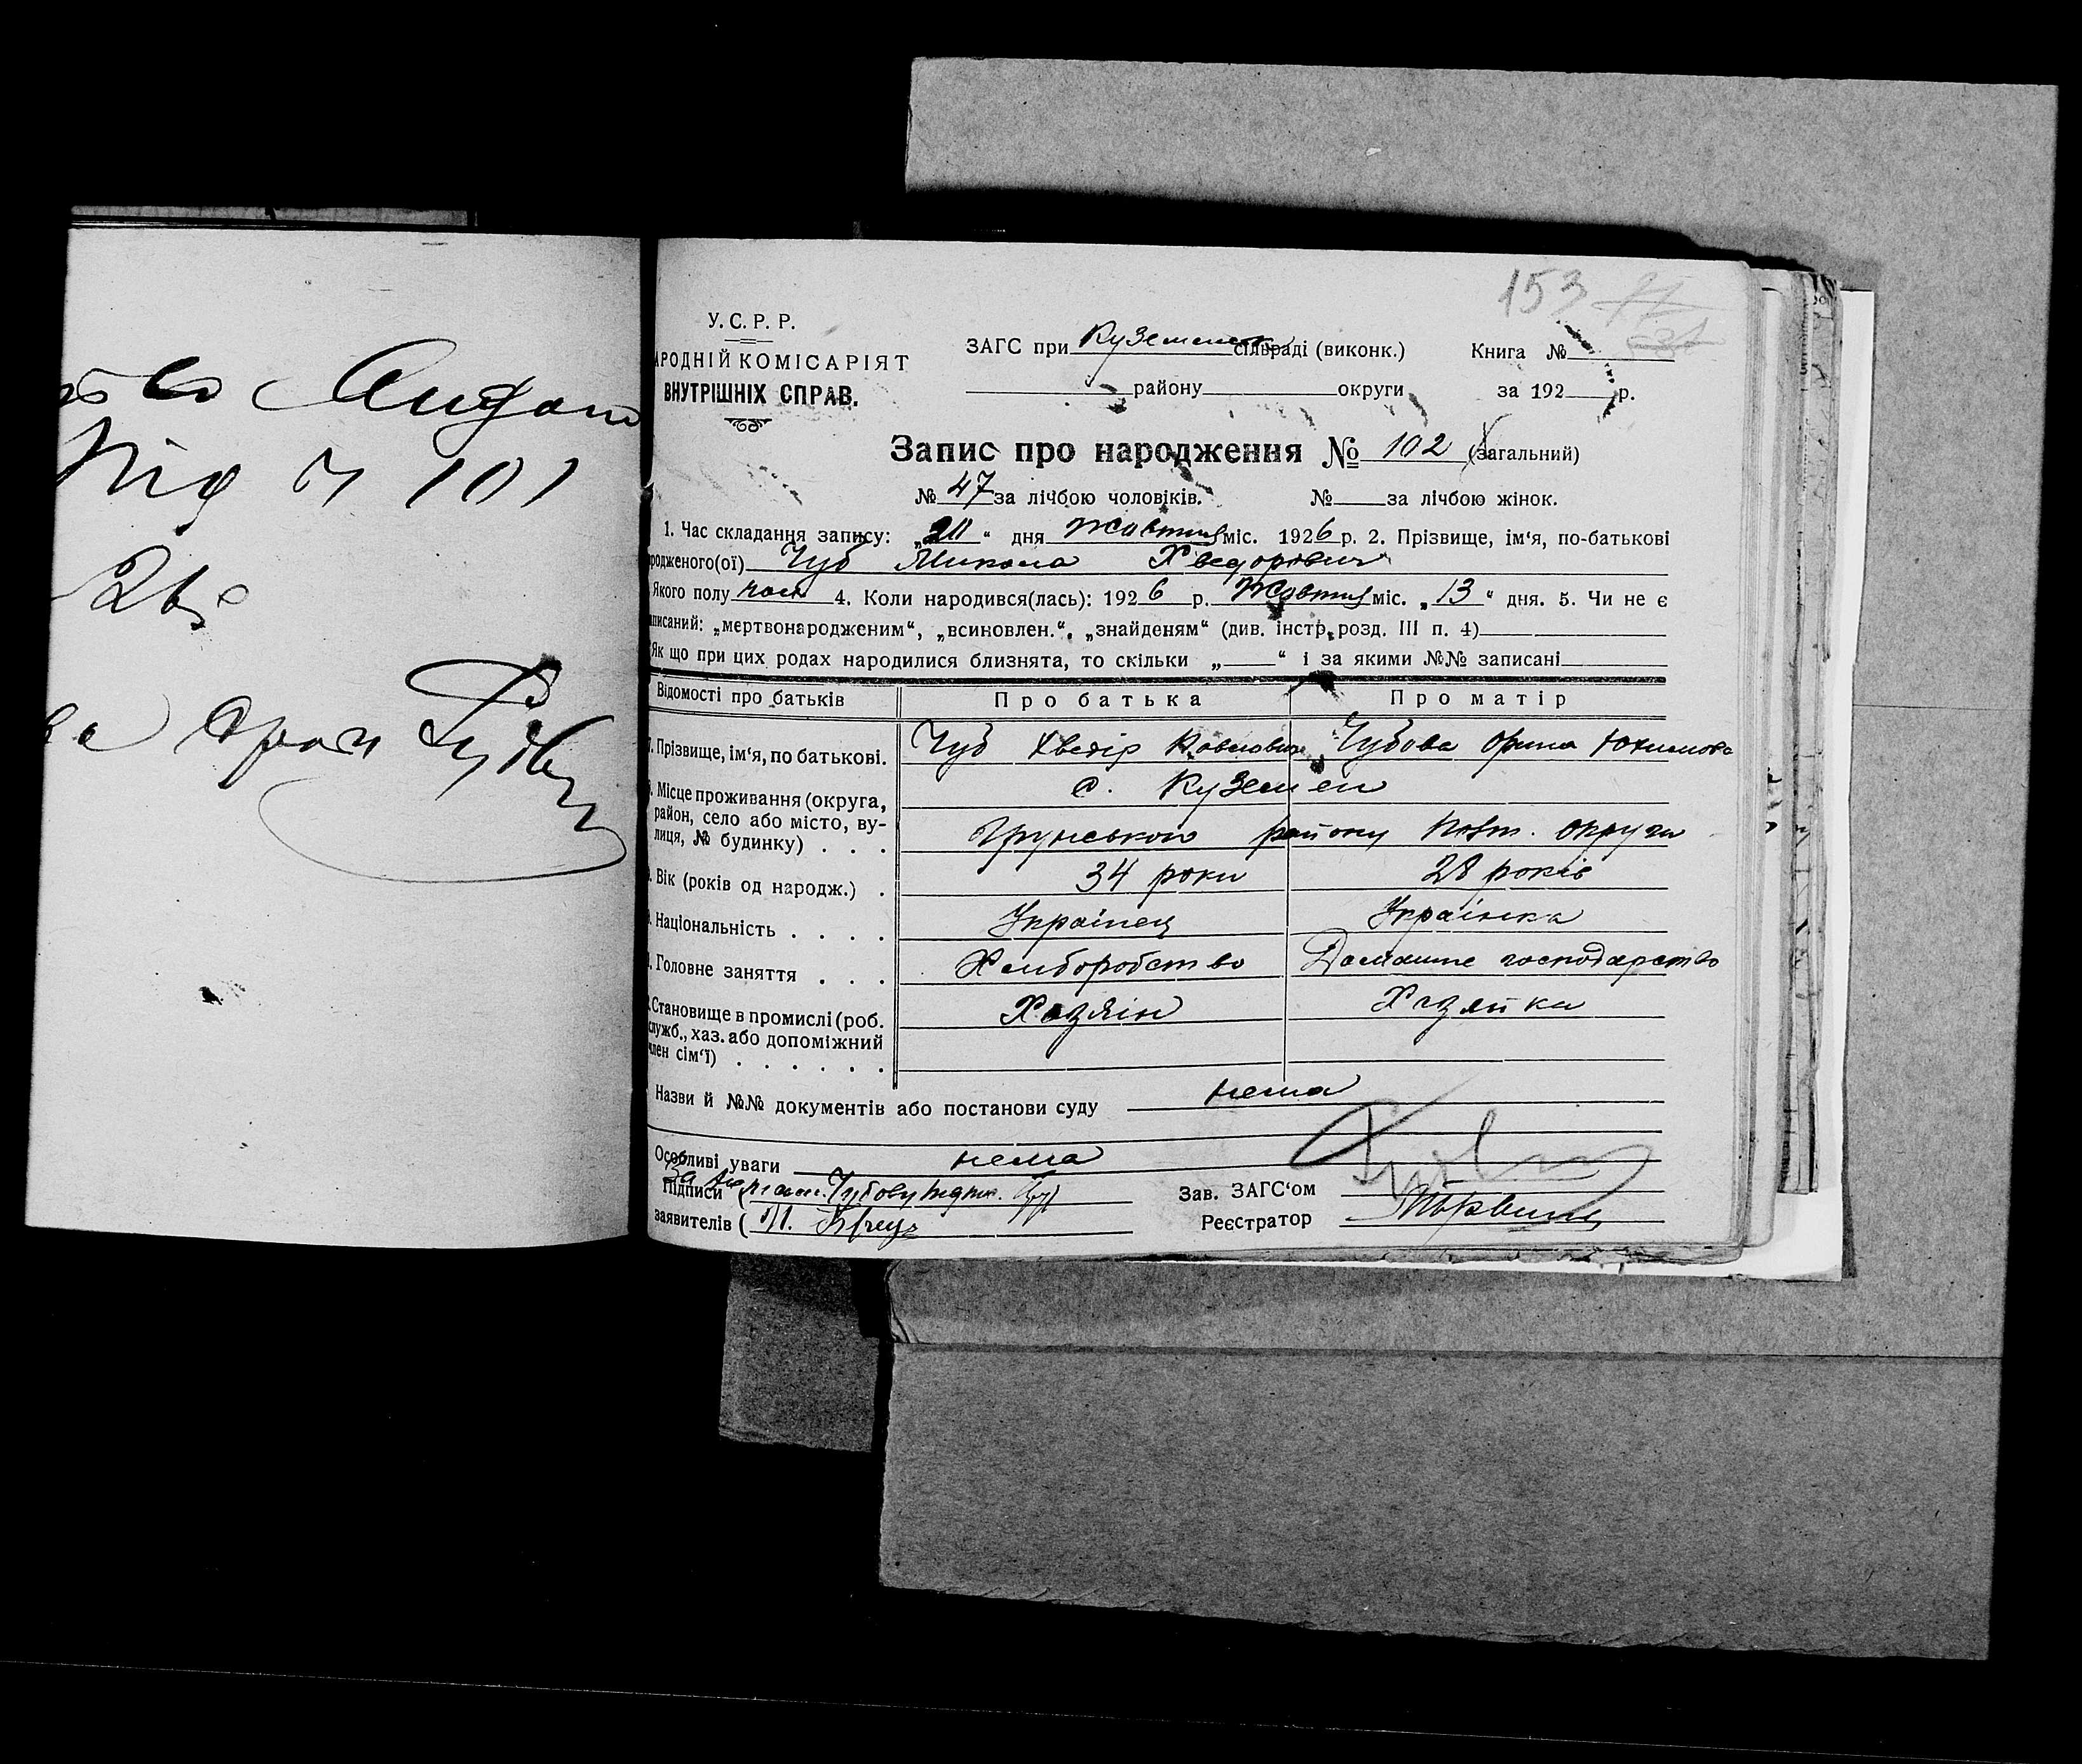 Андо
Під ч 101
153
У. С. Р. Р.
АРОДНІЙ КОМІСАРІЯТ
ВНУТРІШНІХ СПРАВ.
ЗАГС при Куземенск сільраді (виконк.)
Книга №
району округи
за 192 р.
Запис про народження № 102 (загальний)
№ 47 за лічбою чоловіків. № за лічбою жінок.
1. Час складання запису: „20“ дня Жовтня міс. 1926 р. 2. Прізвище, ім‘я, по-батькові
родженого(ої) Чуб Микола Хведорович
Якого полу чол 4. Коли народився(лась): 1926 р. Жовтня міс. „13“ дня. 5. Чи не є
писаний: „мертвонародженим“, „всиновлен.“, „знайденям“ (див. інстр. розд. III п. 4)
Як що при цих родах народилися близнята, то скільки „ “ і за якими №№ записані
Відомості про батьків
Про батька
Про матір
Прізвище, ім‘я, по батькові.
Чуб Хведір Павлович
Чубова Орина Юхимова
Місце проживання (округа,
район, село або місто, ву-
лиця, № будинку) . . .
с. Куземен
Грунського району Полт. округи
Вік (років од народж.) .
34 роки
28 років
Національність . . . .
Українец
Українка
Головне заняття . . .
Хлиборобство
Домашне господарство
Становище в промислі (роб.
служб., хаз. або допоміжний
член сім‘ї) . . . . . .
Хазяін
Хазяйка
Назви й №№ документів або постанови суду нема
Особливі уваги нема
Підписи
заявителів (
Зав. ЗАГС‘ом
Реєстратор